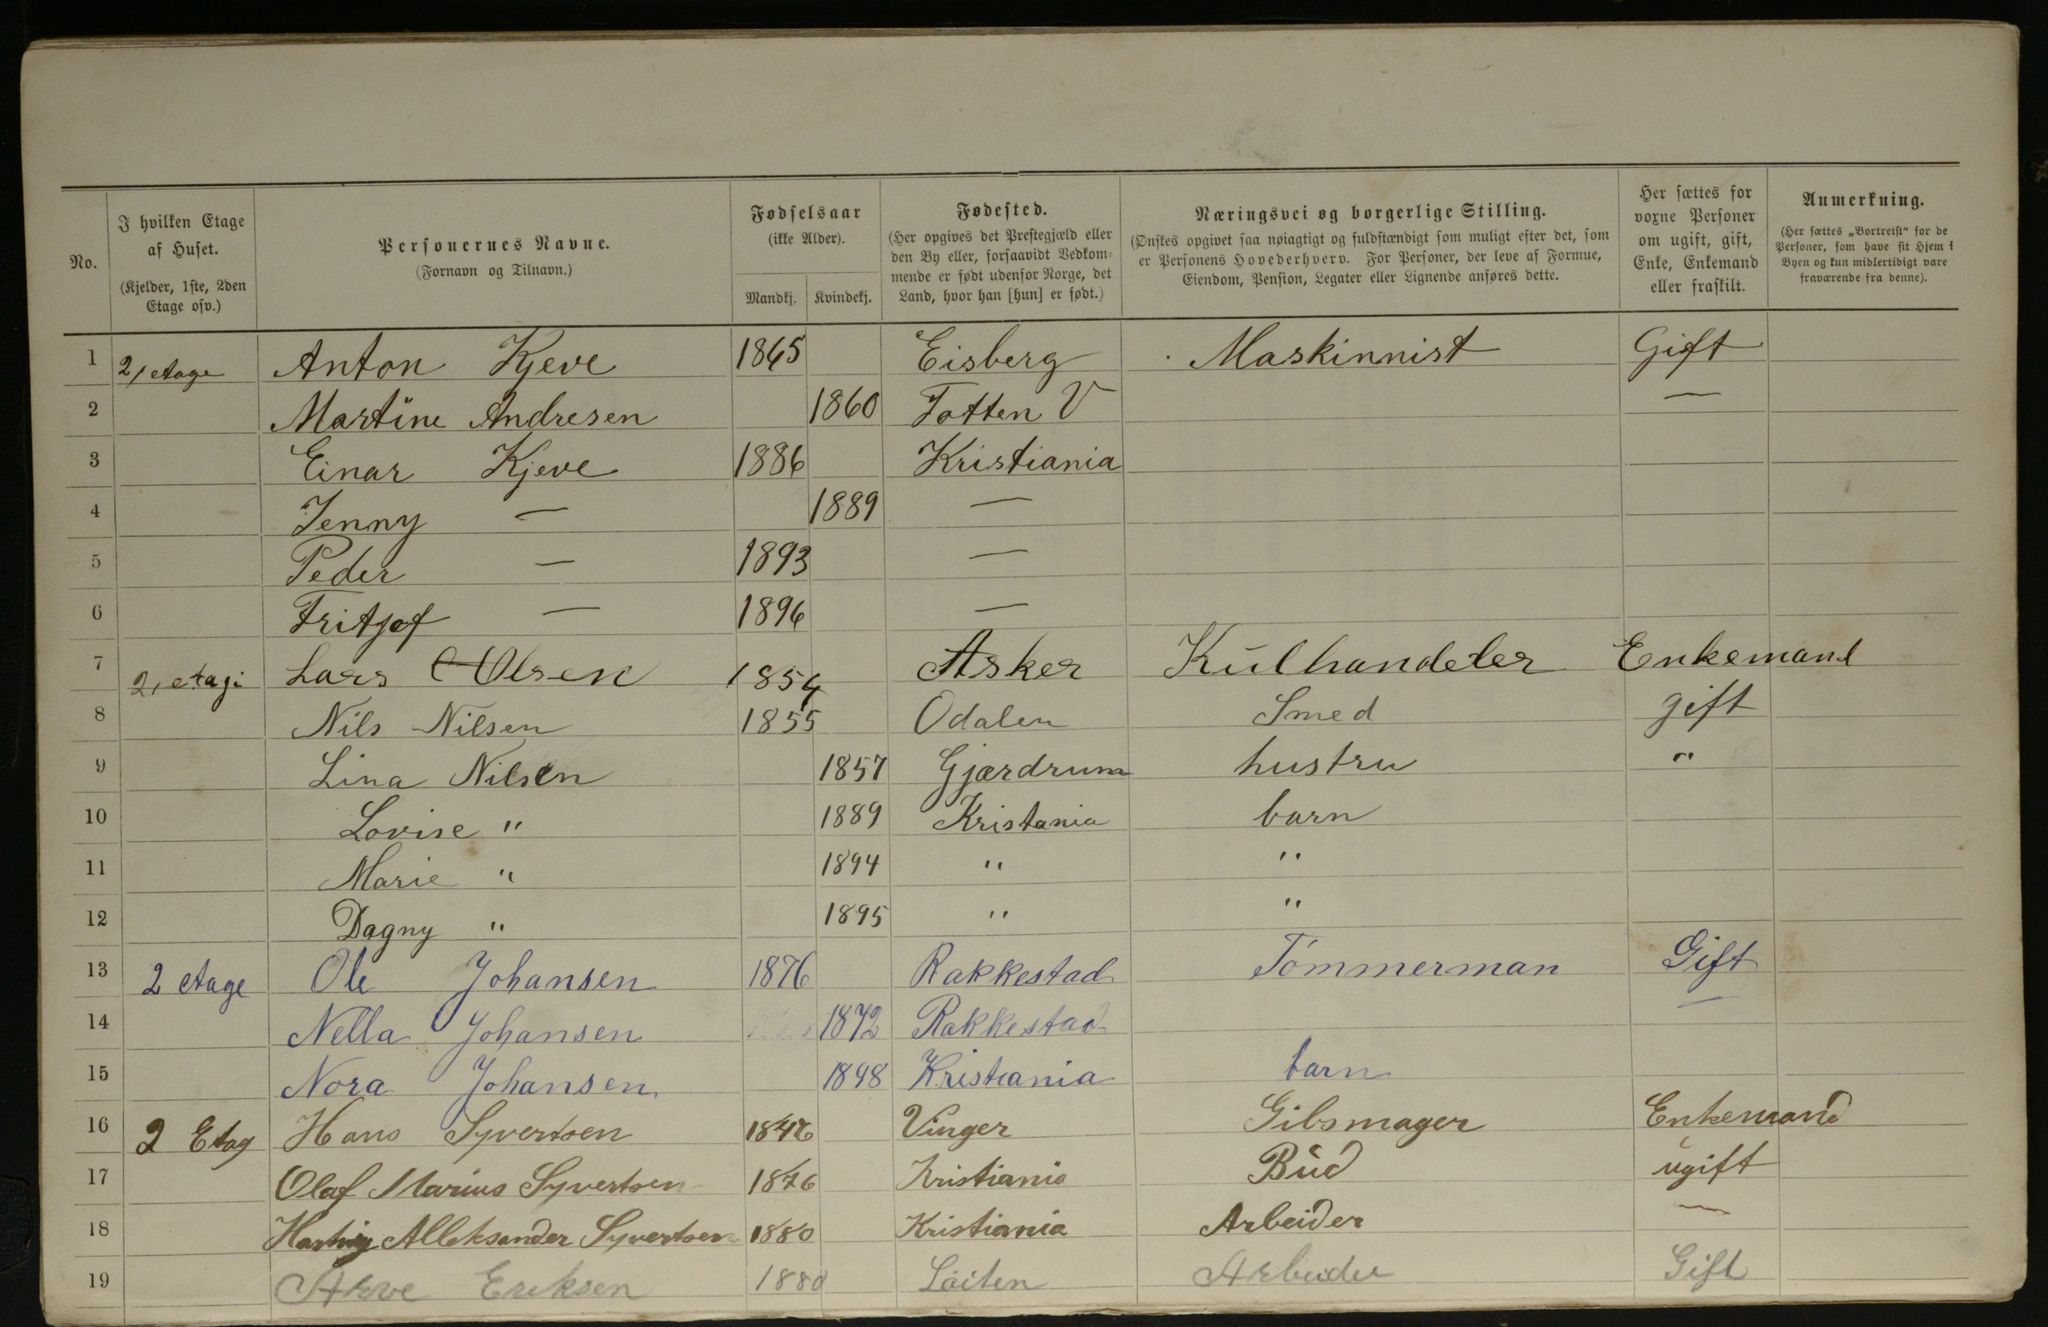 No.
I hvilken Etage af Huset. (Kjelder, 1ste, 2den Etage osv.)
Personernes Navne. (Fornavn og Tilnavn.)
Fødselsaar (ikke Alder). Mandkj. Kvindekj.
Fødested. (Her opgives det Prestegjæld eller den By eller, forsaavidt Vedkommende er født udenfor Norge, det Land, hvor han [hun] er født.)
Næringsvei og borgerlige Stilling. (Ønskes opgivet saa nøiagtigt og fuldstændigt som muligt efter det, som er Personens Hovederhverv. For Personer, der leve af Formue, Eiendom, Pension, Legater eller Lignende anføres dette.)
Her sættes for voxne Personer om ugift, gift, Enke, Enkemand eller fraskilt.
Anmerkning. (Her sættes „Bortreist“ for de Personer, som have sit Hjem i Byen og kun midlertidigt vare fraværende fra denne).
1 2, etage Anton Kjeve 1865 Eisberg Maskinnist Gift
2 Martine Andresen 1860 Totten V —
3 Einar Kjeve 1886 Kristiania
4 Jenny — 1889 —
5 Peder — 1893 —
6 Fritjof — 1896 —
7 2, etagi Lars Olsen 1854 Asker Kulhandeler Enkemand
8 Nils Nilsen 1855 Odalen Smed gift
9 Lina Nilsen 1857 Gjærdrum hustru "
10 Lovise " 1889 Kristania barn
11 Marie " 1894 " "
12 Dagny " 1895 " "
13 2 etage Ole Johansen 1876 Rakkestad Tömmerman Gift
14 Nella Johansen 1872 Rakkestad —
15 Nora Johansen 1898 Kristiania barn
16 2 Etag Hans Syvertsen 1846 Vinger Gibsmager Enkemand
17 Olaf Marius Syvertsen 1876 Kristiania Bud ugift
18 Hartvig Alleksander Syvertsen 1880 Kristiania Arbeider —
19 Arve Eriksen 1880 Löiten Arbeider Gift